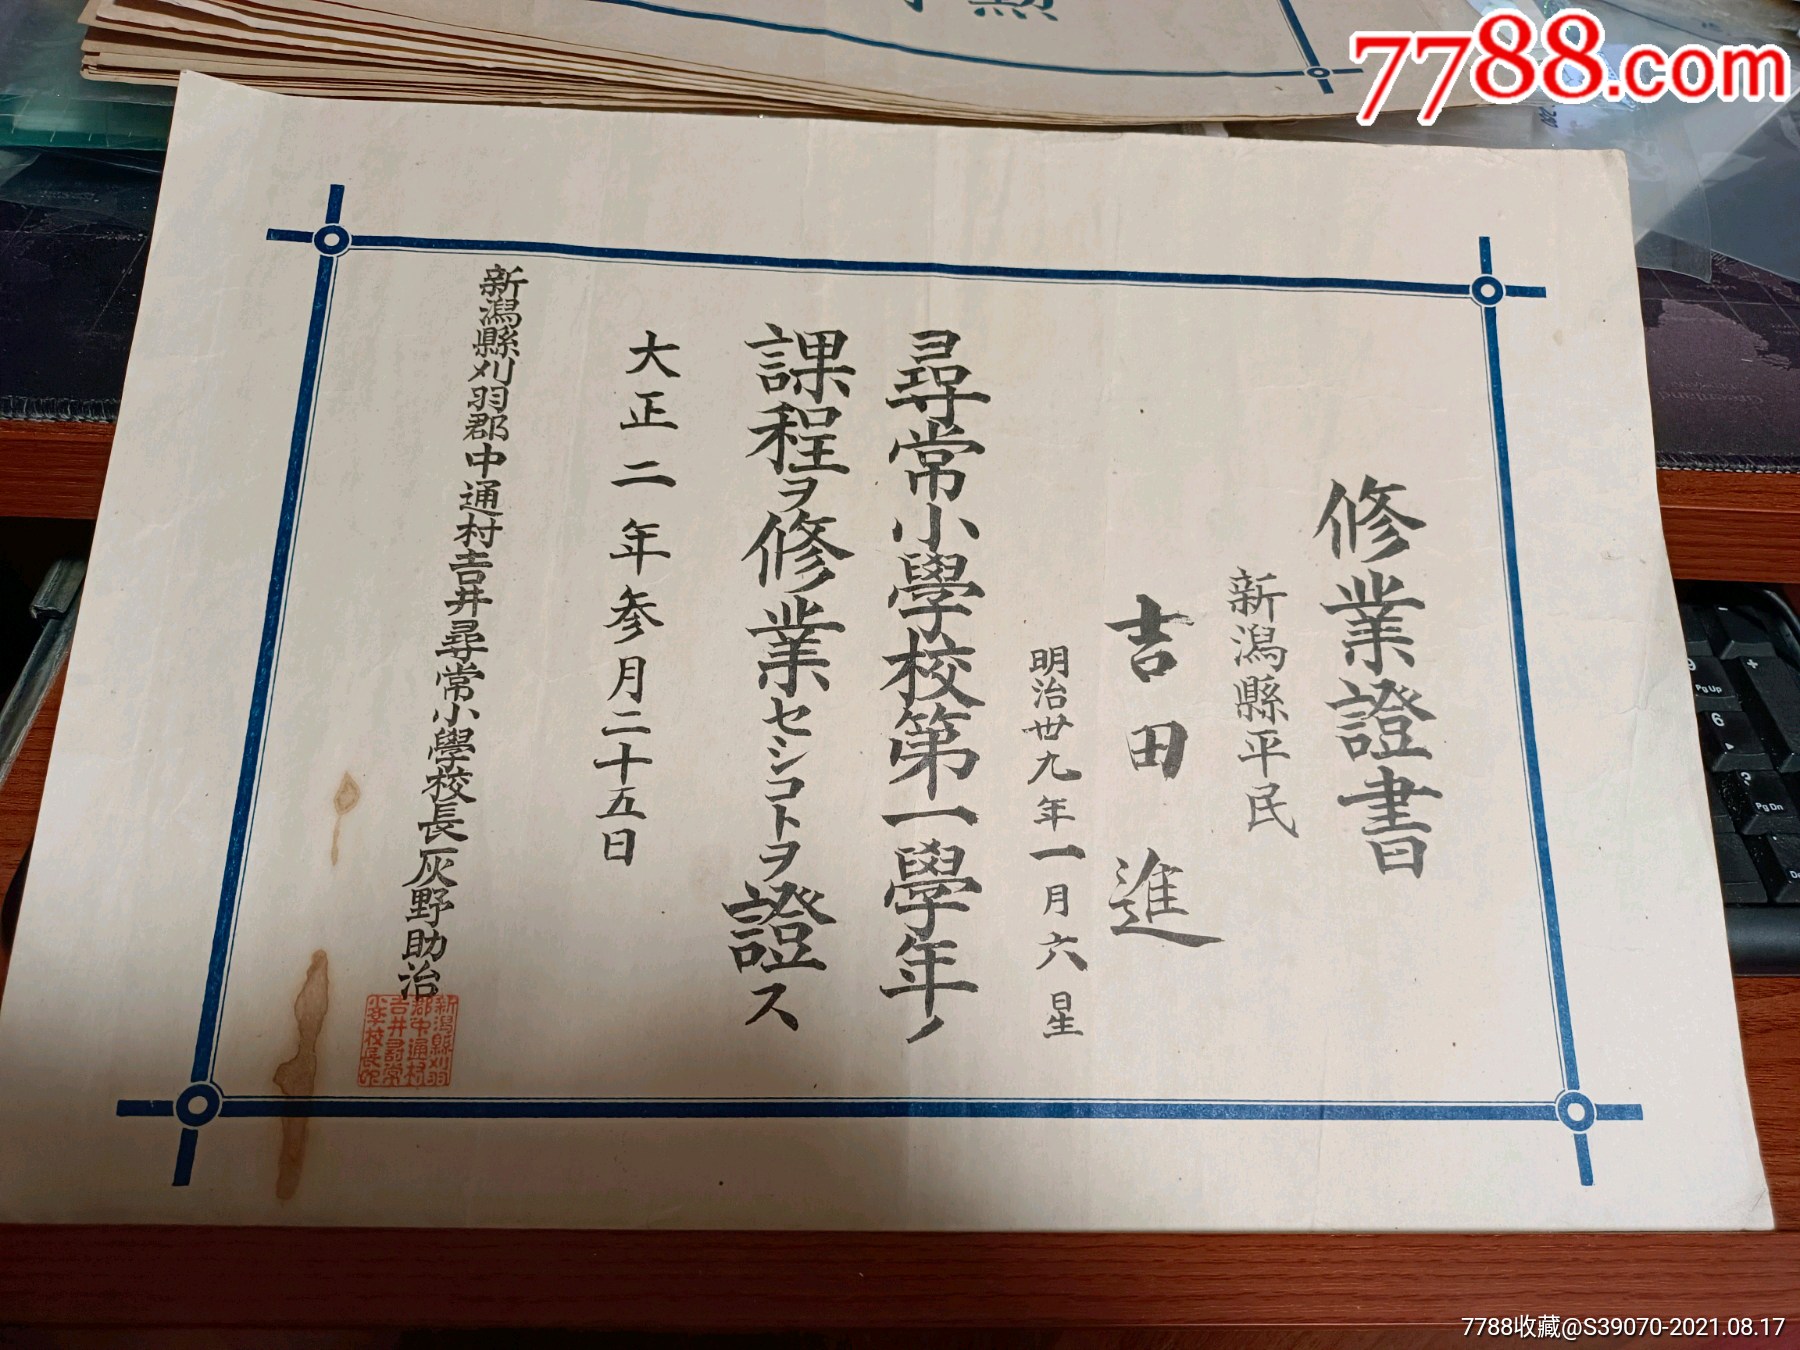 修業證書
新潟縣平民
吉田進
明治卅九年一月六日生
尋常小學校第一學年ノ
課程ヲ修業セシコトヲ證ス
大正二年参月二十五日
新潟縣刈羽郡中通村吉井尋常小學校長灰野助治
新潟縣刈羽
郡中通村
吉井尋常
小學校長印
勲
7788.com
7788收藏@S39070-2021.08.17
Greenland
PgUp
6
PgDn